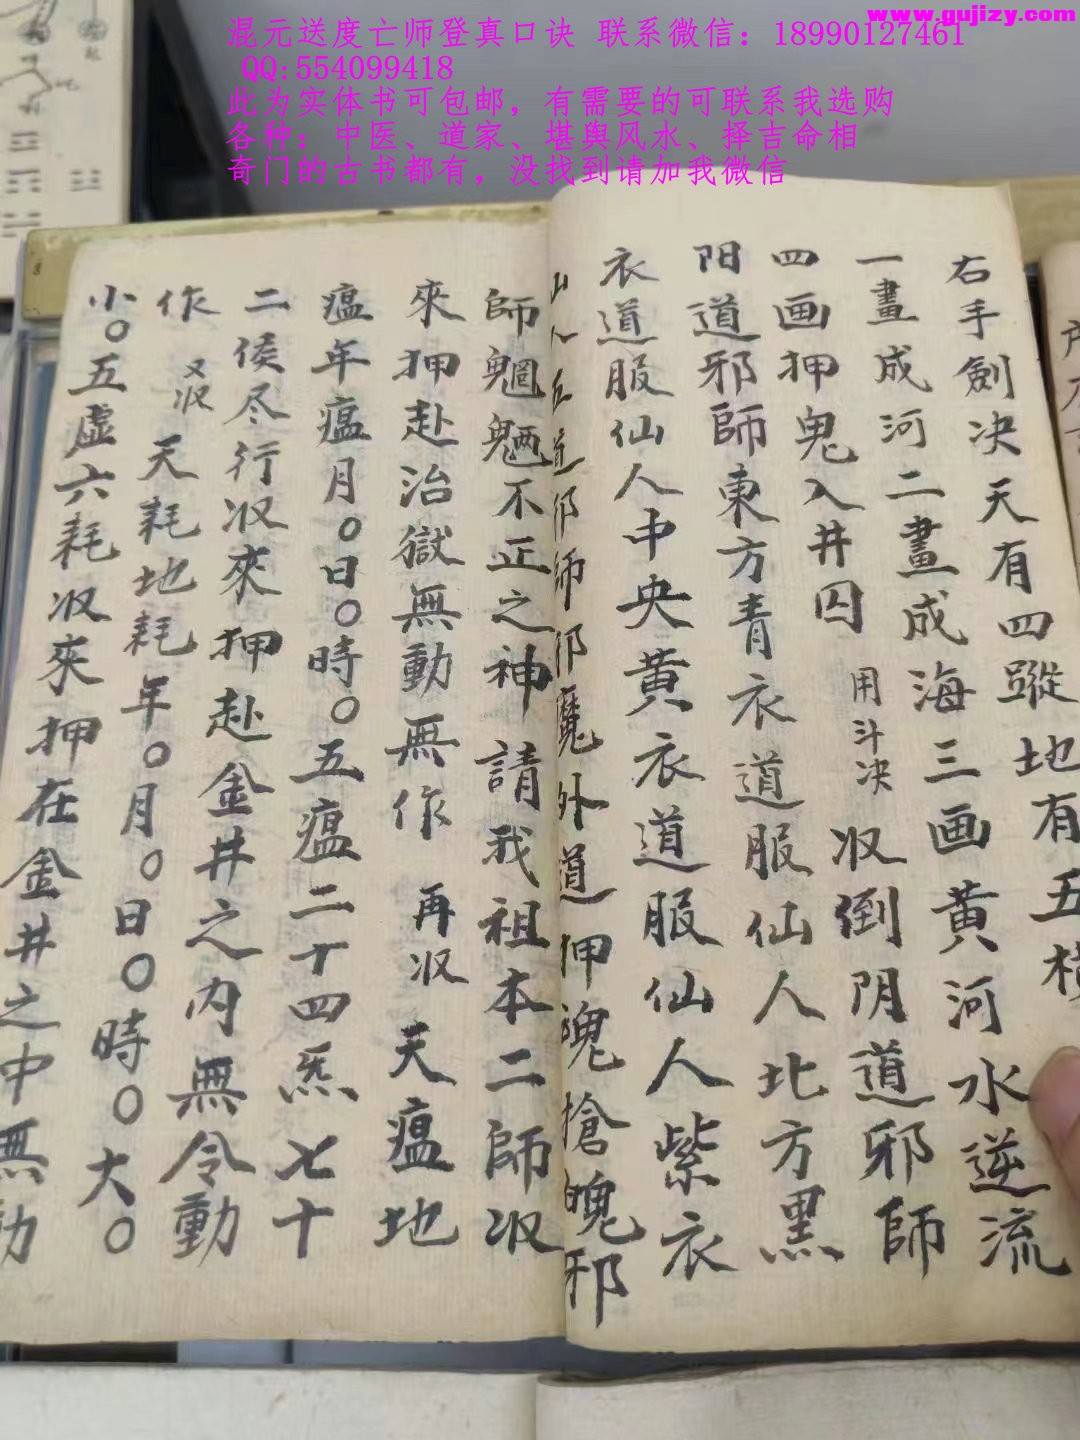 www.gujizy.com
混元送度亡师登真口诀 联系微信：18990127461
QQ:554099418
此为实体书可包邮，有需要的可联系我选购
各种；中医、道家、堪舆风水、择吉命相
奇门的古书都有，没找到请加我微信
右手劍决天有四蹤地有五橫
一畫成河二畫成海三画黄河水逆流
四画押鬼入井囚 用斗决 収倒阴道邪師
阳道邪師東方青衣道服仙人北方黑
衣道服仙人中央黄衣道服仙人紫衣
道邪師邪魔外道押魂搶魄邪
師魍魎不正之神請我祖本二師収
來押赴治獄無動無作 再収 天瘟地
瘟年瘟月〇日〇時〇五瘟二十四炁七十
二侯尽行収來押赴金井之内無令動
作 又収 天耗地耗年〇月〇日〇時〇大〇
小〇五虚六耗収來押在金井之中無動